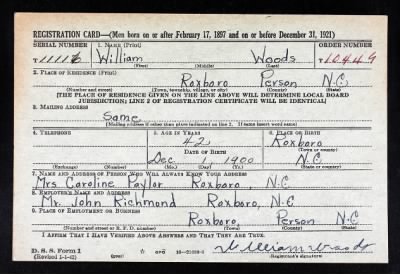 REGISTRATION CARD—(Men born on or after February 17, 1897 and on or before December 31, 1921)
SERIAL NUMBER 1. NAME (Print) ORDER NUMBER
William Woods T 10449
(First) (Middle) (Last)
2. PLACE OF RESIDENCE (Print)
Roxboro Person N.C.
(Number and street) (Town, township, village, or city) (County) (State)
[THE PLACE OF RESIDENCE GIVEN ON THE LINE ABOVE WILL DETERMINE LOCAL BOARD
JURISDICTION; LINE 2 OF REGISTRATION CERTIFICATE WILL BE IDENTICAL]
3. MAILING ADDRESS
Same
[Mailing address if other than place indicated on line 2. If same insert word same]
4. TELEPHONE 5. AGE IN YEARS 6. PLACE OF BIRTH
42 Roxboro
DATE OF BIRTH (Town or county)
Dec 1 1900 N.C.
(Exchange) (Number) (Mo.) (Day) (Yr.) (State or country)
7. NAME AND ADDRESS OF PERSON WHO WILL ALWAYS KNOW YOUR ADDRESS
Mrs Caroline Paylor Roxboro, N.C
8. EMPLOYER'S NAME AND ADDRESS
Mr. John Richmond Roxboro, N.C.
9. PLACE OF EMPLOYMENT OR BUSINESS
Roxboro, Person N.C.
(Number and street or R. F. D. number) (Town) (County) (State)
I AFFIRM THAT I HAVE VERIFIED ABOVE ANSWERS AND THAT THEY ARE TRUE.
D. S. S. Form 1
(Revised 1-1-42) (over) William Woods